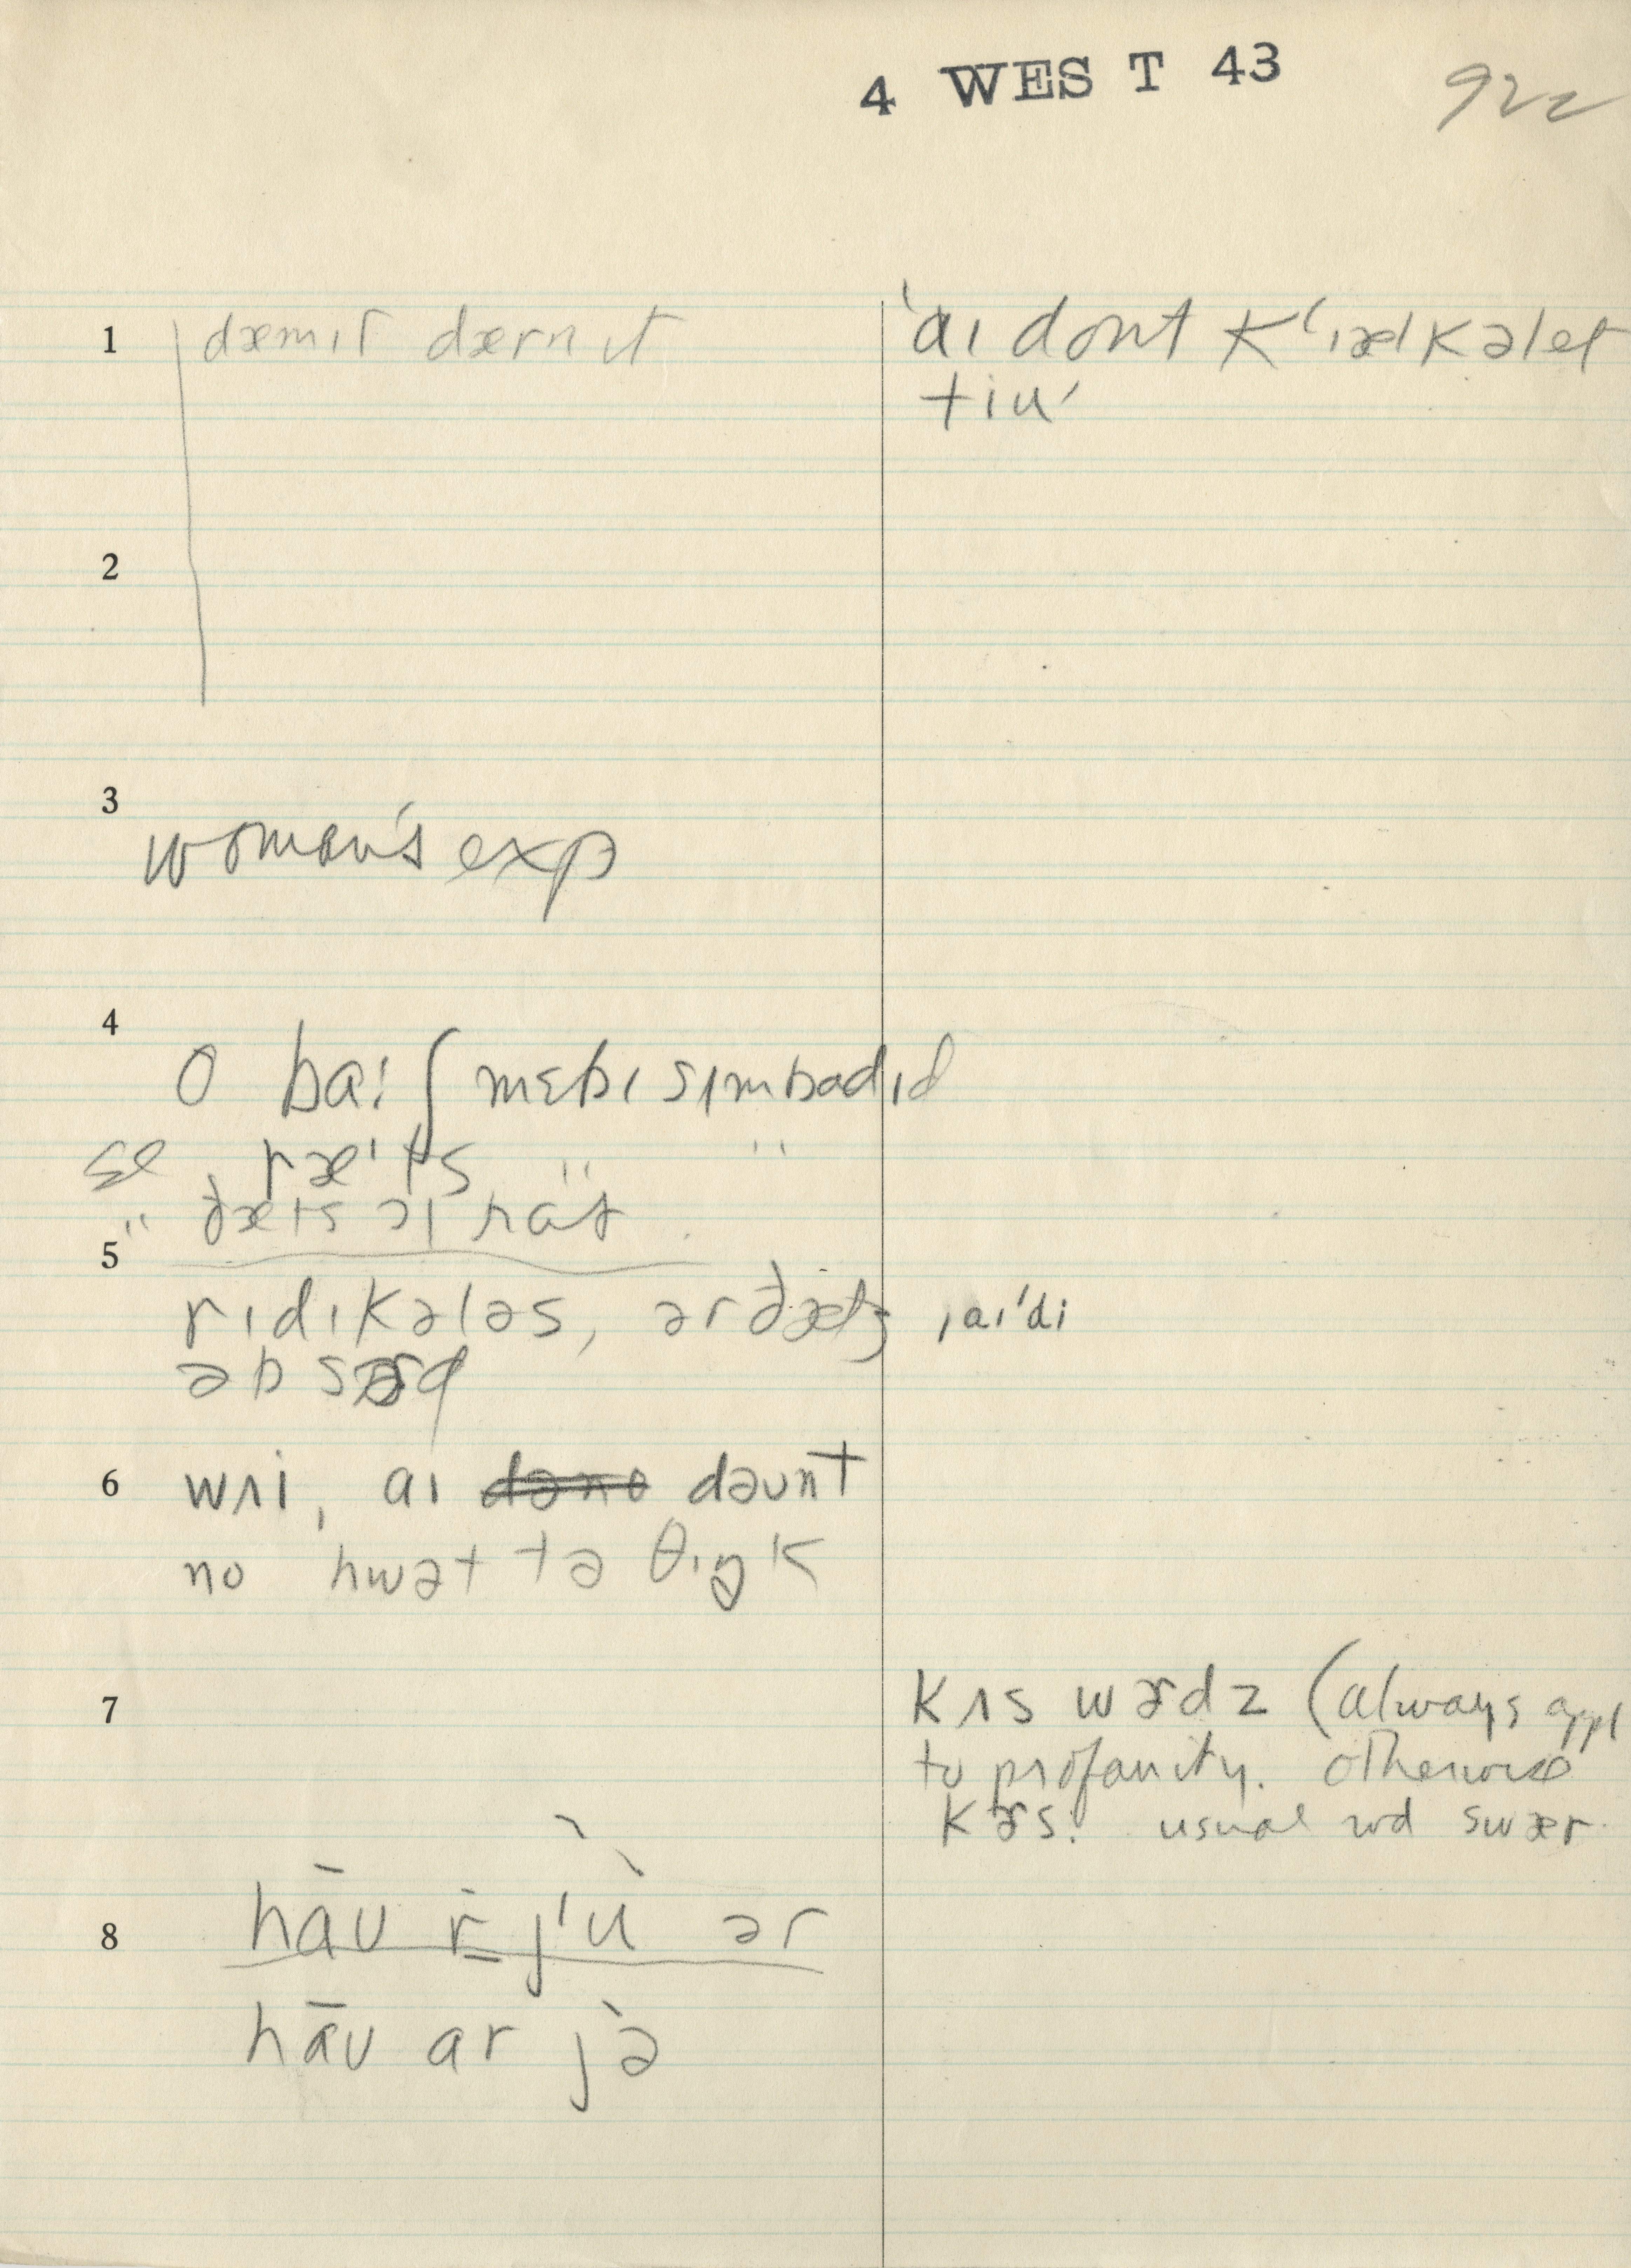 4 WEST 43
922
1 dæmɪt dærn ɪt
'aɪ dont k'ælkəlet
tiu'
2
3
women's exp
4
o baɪ ʃ mɛbɪ sɪmbadɪd
se ræ'ts " "
" ðæts əl rat
5
rɪdɪkələs, ər ðæts ,aɪ'di
əb sɚd
6 wʌi, aɪ dəno dəʊnt
no hwət tə θɪŋk
7
kʌs wɚdz (always appl
to profanity. otherwise
kɚs. usual wd swær.
8
hāʊ r̀ j'ù ər
hāʊ ar jə̀